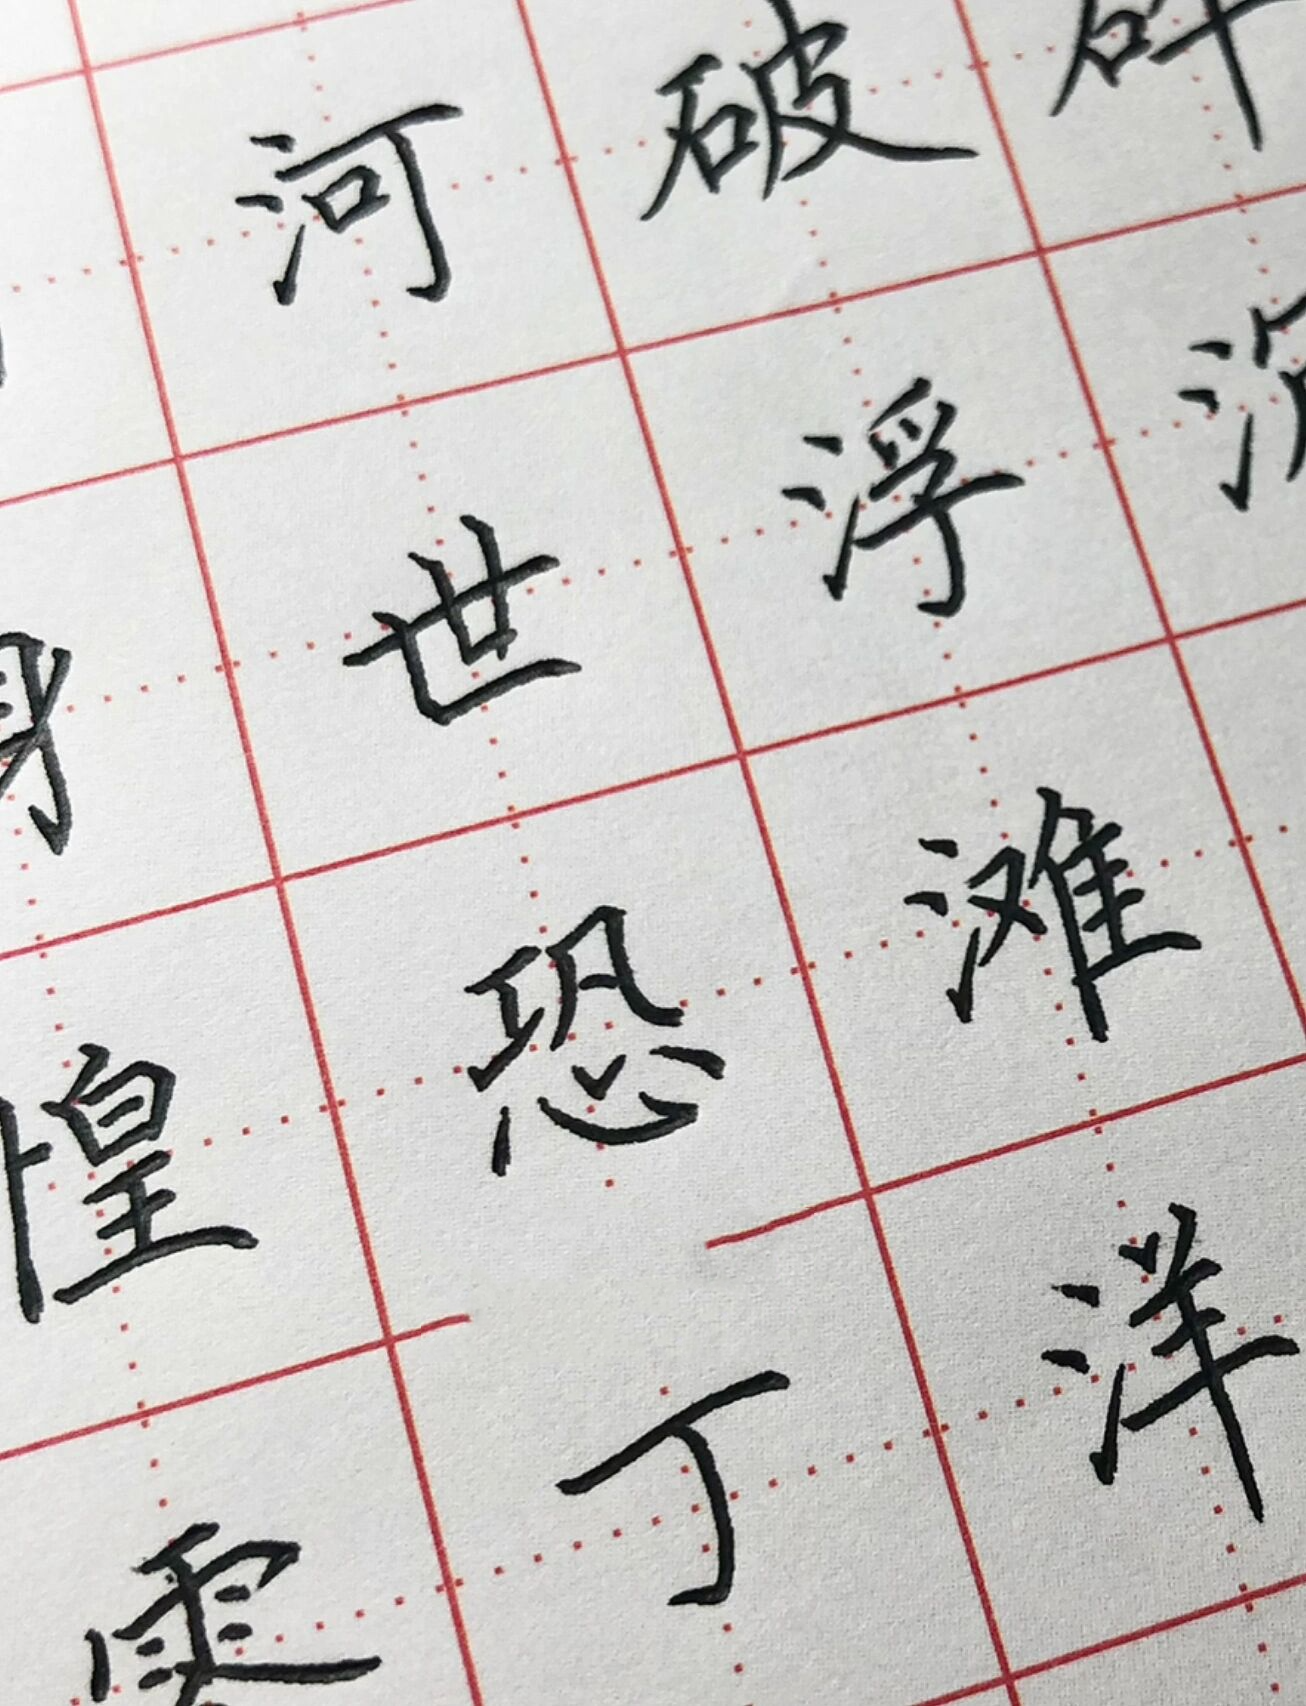 河破碎
身世浮沉
惶恐滩
零丁洋